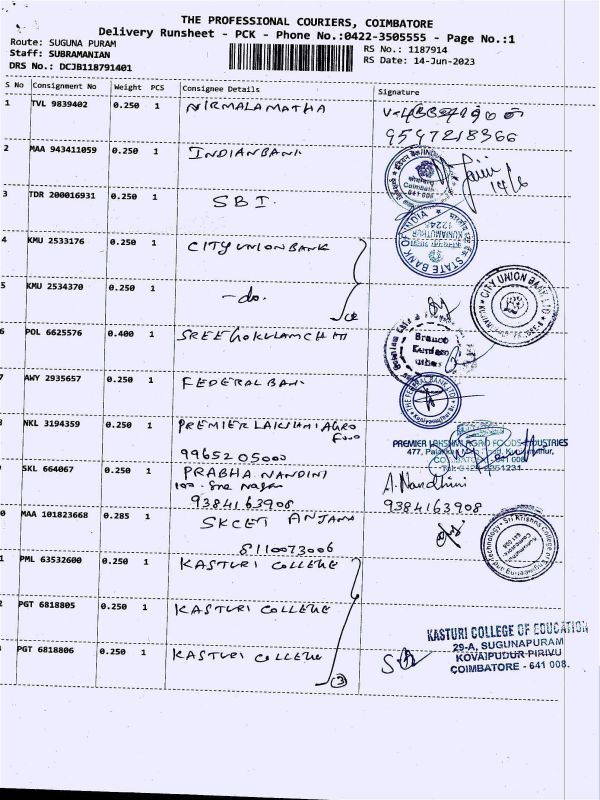 THE PROFESSIONAL COURIERS, COIMBATORE
Delivery Runsheet - PCK - Phone No.:0422-3505555 - Page No.:1
Route: SUGUNA PURAM
Staff: SUBRAMANIAN
DRS No.: DCJB118791401
RS No.: 1187914
RS Date: 14-Jun-2023
S No Consignment No Weight PCS Consignee Details Signature
1 TVL 9839402 0.250 1 NIRMALAMATHA
9597218366
2 MAA 943411059 0.250 1 INDIANBANK
14/6
3 TDR 200016931 0.250 1 SBI
STATE BANK OF INDIA
4 KMU 2533176 0.250 1 CITYUNIONBANK
5 KMU 2534370 0.250 1 -do.
CITY UNION BANK LTD
6 POL 6625576 0.400 1 SREEGOKULAMCHIT
Branch
7 AWY 2935657 0.250 1 FEDERALBANK
THE FEDERAL BANK LTD
NKL 3194359 0.250 1 PREMIER LAKSHMI AGRO
FOOD
9965205000
PREMIER LAKSHMI AGRO FOODS INDUSTRIES
SKL 664067 0.250 1 PRABHA NANDINI
9384163908
A. Nandhini
9384163908
0 MAA 101823668 0.285 1 SKCET ANJANA
8110073006
Sri Krishna College of Engineering and Technology
Coimbatore
1 PML 63532600 0.250 1 KASTURI COLLEGE
2 PGT 6818805 0.250 1 KASTURI COLLEGE
PGT 6818806 0.250 1 KASTURI COLLEGE
3
KASTURI COLLEGE OF EDUCATION
29-A, SUGUNAPURAM
KOVAIPUDUR PIRIVU
COIMBATORE - 641 008.